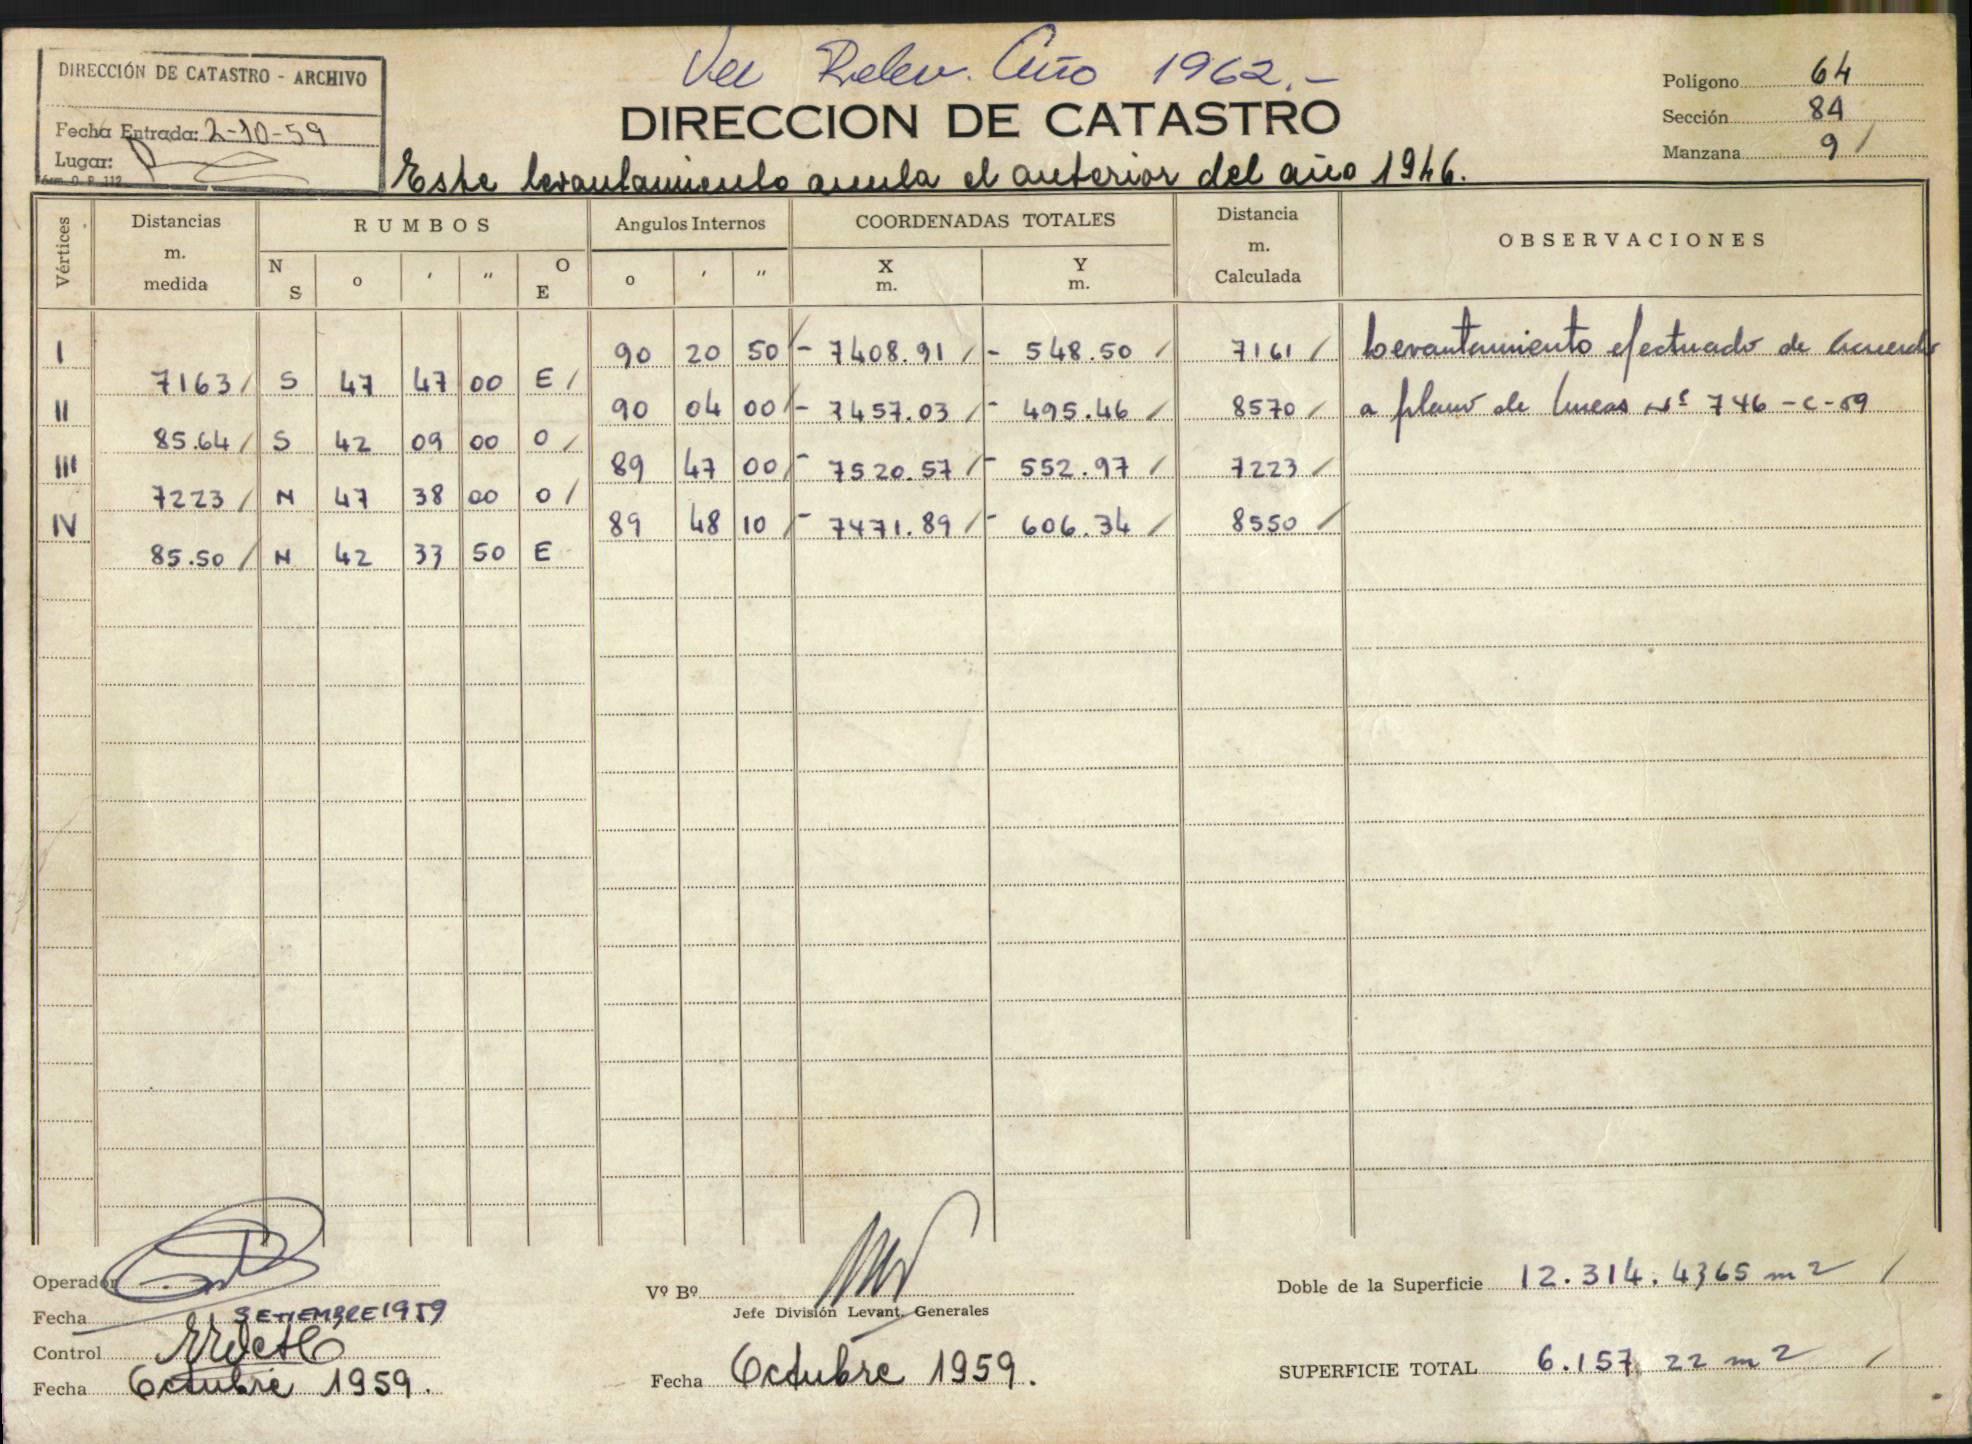 Ver Relev. Año 1962.-
DIRECCIÓN DE CATASTRO - ARCHIVO
Fecha Entrada: 2-10-59
Lugar:
DIRECCION DE CATASTRO
Polígono 64
Sección 84
Manzana 9 /
Este levantamiento anula el anterior del año 1946.
Vértices
Distancias m. medida
RUMBOS
Angulos Internos
COORDENADAS TOTALES
Distancia m. Calculada
OBSERVACIONES
N S o ' " O E
o ' "
X m. Y m.
I 90 20 50 - 7408.91 / - 548.50 / 7161 / Levantamiento efectuado de acuerdo
7163 / S 47 47 00 E /
II 90 04 00 - 7457.03 / - 495.46 / 8570 / a plano de lineas Nº 746-C-59
85.64 / S 42 09 00 O /
III 89 47 00 - 7520.57 / - 552.97 / 7223 /
7223 / N 47 38 00 O /
IV 89 48 10 - 7471.89 / - 606.34 / 8550 /
85.50 / N 42 33 50 E
Operador
Fecha SETIEMBRE 1959
Control
Fecha Octubre 1959.
Vº Bº
Jefe División Levant. Generales
Fecha Octubre 1959.
Doble de la Superficie 12.314.4365 m2 /
SUPERFICIE TOTAL 6.157, 22 m2 /